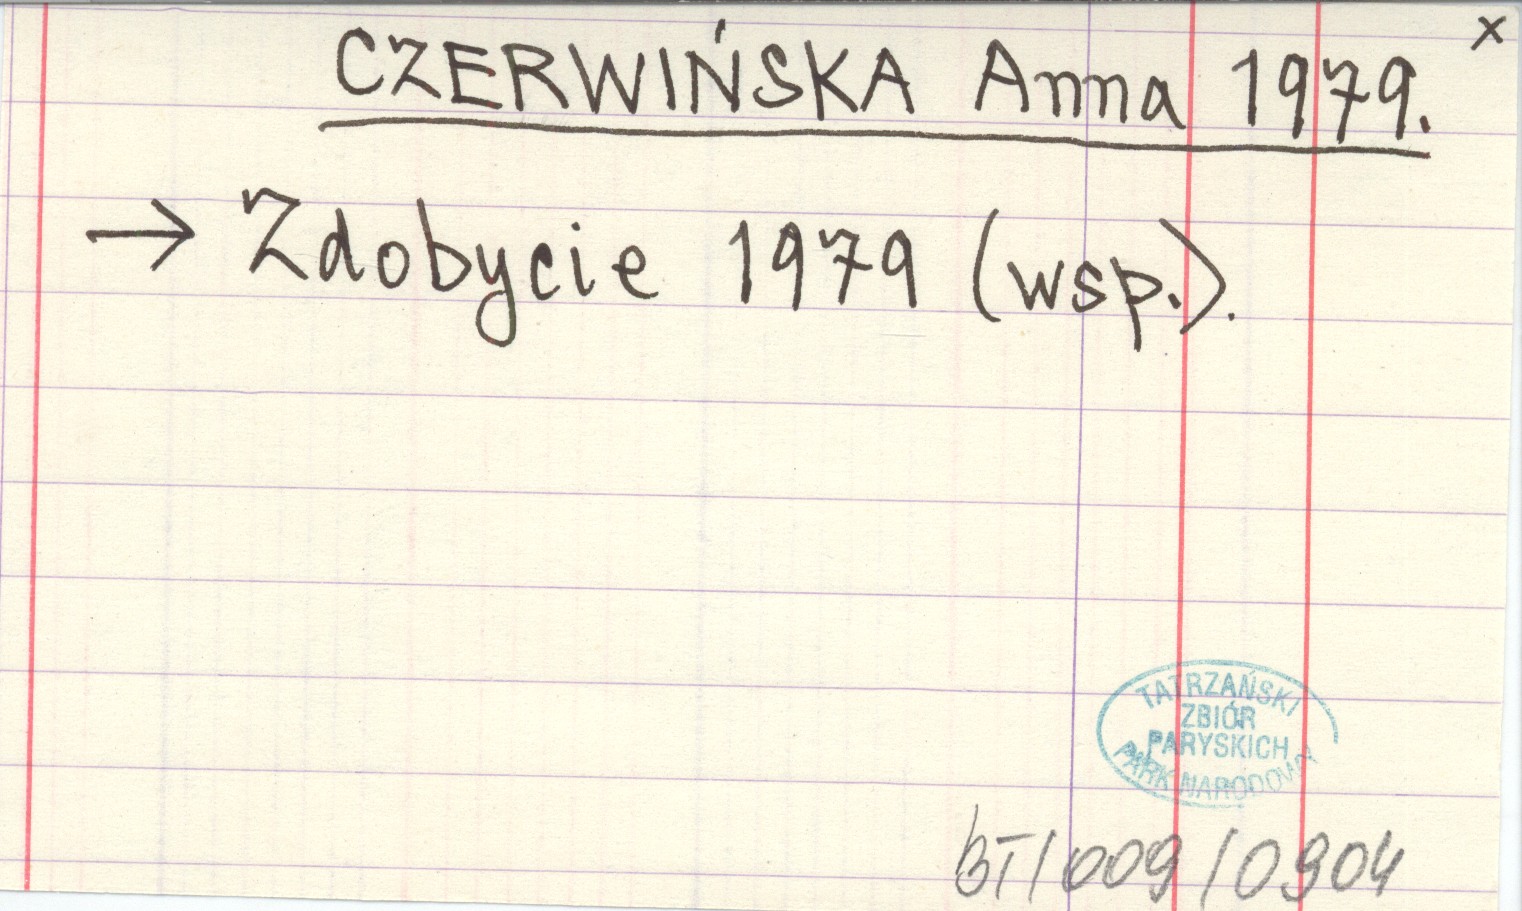 x
CZERWIŃSKA Anna 1979.
→ Zdobycie 1979 (wsp.).
TATRZAŃSKI
ZBIÓR
PARYSKICH
PARK NARODOWY
BT/009/0904